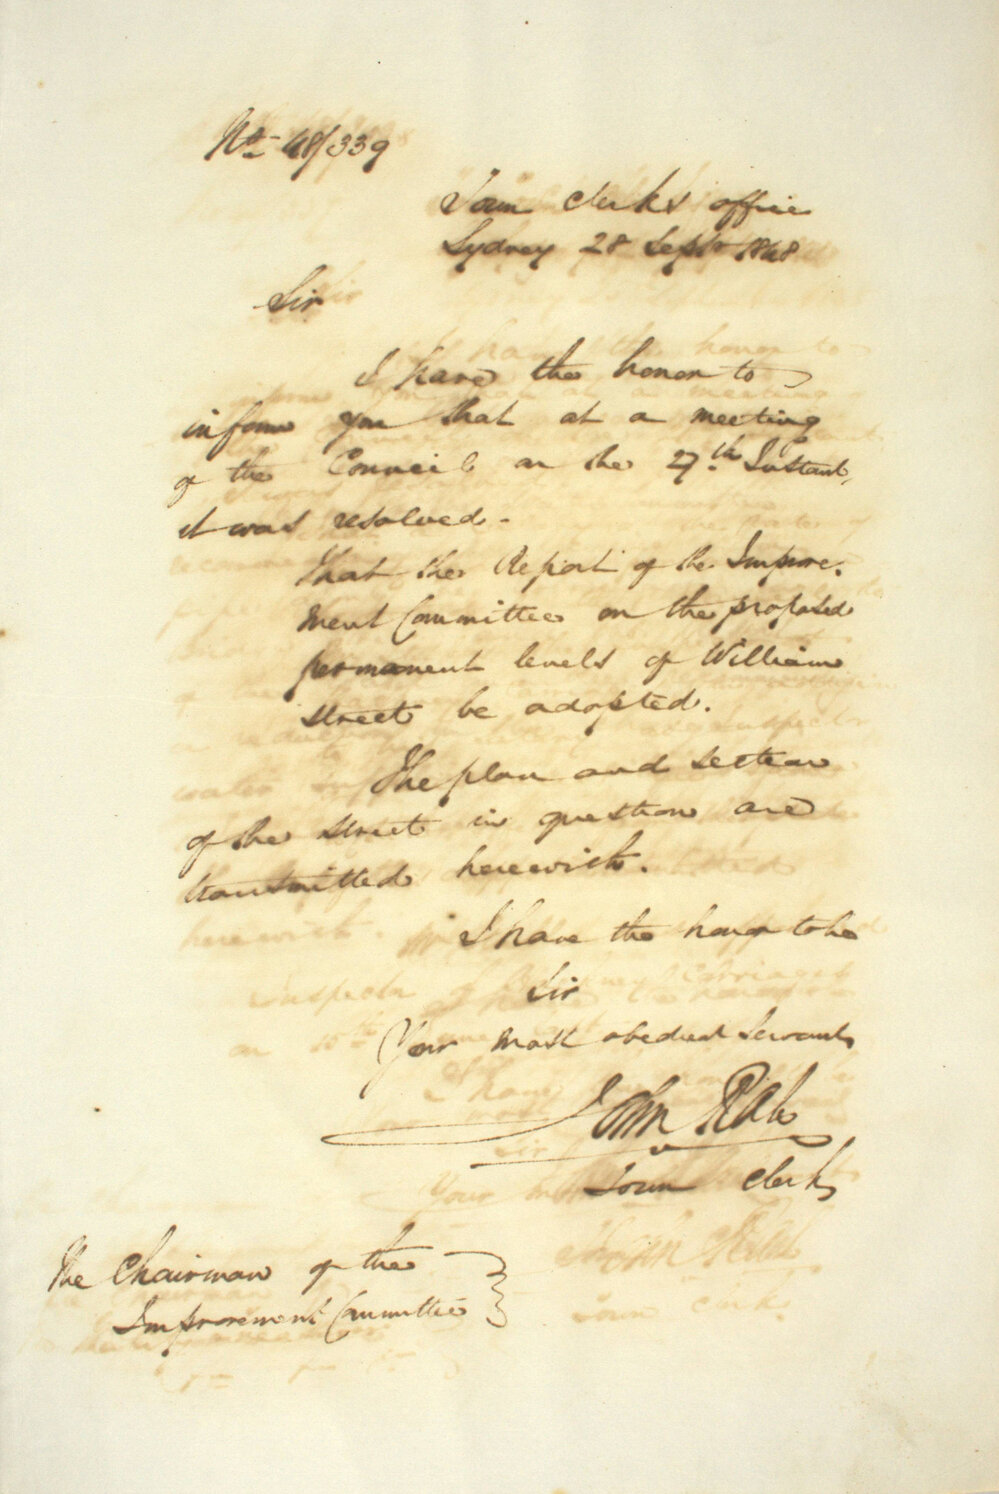 No. 48/339
Town Clerks office
Sydney 28 Septr 1848
Sir
I have the honor to
inform you that at a meeting
of the Council on the 27th Instant,
it was resolved.
That the Report of the Improve.
ment Committee on the proposed
permanent levels of William
Street be adopted.
The plan and section
of the Street in question are
transmitted herewith.
I have the honor to be
Sir
Your most obedient Servant
John Rae
Town Clerk
The Chairman of the
Improvement Committee